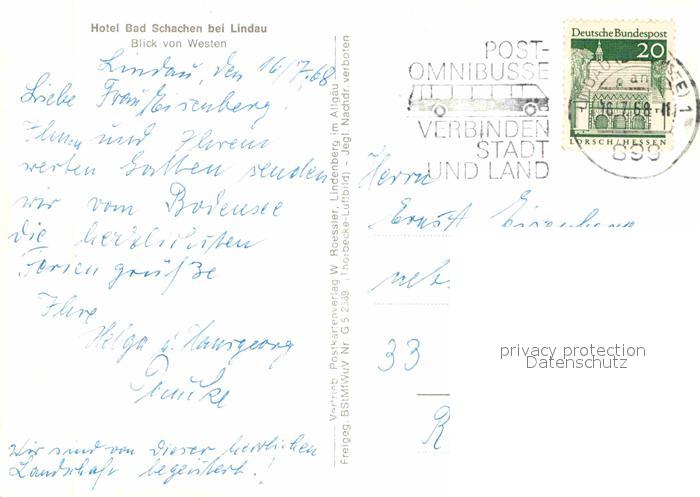 Hotel Bad Schachen bei Lindau
Blick von Westen
Lindau, den 16/7.68
Liebe Frau Eisenberg!
Ihnen und Ihrem
werten Gatten senden
wir vom Bodensee
die herzlichsten
Feriengrüße
Ihre
Helga u. Hansgeorg
Wir sind von dieser herrlichen
Landschaft begeistert!
Vertrieb: Postkartenverlag W. Roessler, Lindenberg im Allgäu
Freigeg. BStMfWuV Nr. G 5 (Thorbecke-Luftbild) – Jegl. Nachdr. verboten
POST-
OMNIBUSSE
VERBINDEN
STADT
UND LAND
Deutsche Bundespost
20
LORSCH/HESSEN
16.7.68
899
Herrn
Ernst Eisenberg
neb.
33
R
privacy protection
Datenschutz